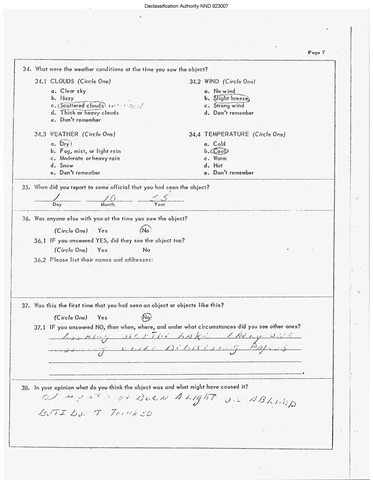 Declassification Authority NND 923007
Page 7
34. What were the weather conditions at the time you saw the object?
34.1 CLOUDS (Circle One)
a. Clear sky
b. Hazy
c. Scattered clouds
d. Thick or heavy clouds
e. Don't remember
34.2 WIND (Circle One)
a. No wind
b. Slight breeze
c. Strong wind
d. Don't remember
34.3 WEATHER (Circle One)
a. Dry
b. Fog, mist, or light rain
c. Moderate or heavy rain
d. Snow
e. Don't remember
34.4 TEMPERATURE (Circle One)
a. Cold
b. Cool
c. Warm
d. Hot
e. Don't remember
35. When did you report to some official that you had seen the object?
1 10
Day Month Year
36. Was anyone else with you at the time you saw the object?
(Circle One) Yes No
36.1 IF you answered YES, did they see the object too?
(Circle One) Yes No
36.2 Please list their names and addresses:
37. Was this the first time that you had seen an object or objects like this?
(Circle One) Yes No
37.1 IF you answered NO, then when, where, and under what circumstances did you see other ones?
LOOKING THE LAKE
DELIVERING PAPERS
38. In your opinion what do you think the object was and what might have caused it?
BEEN A LIGHT A BLIMP
BUT I DON'T THINK SO